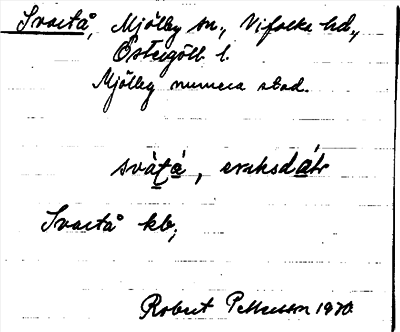 Svartå, Mjölby sn., Vifolka hd.,
Östergötl. l.
Mjölby numera stad.
svàtá, eruksdátr
Svartå kb;
Robert Petterson 1970